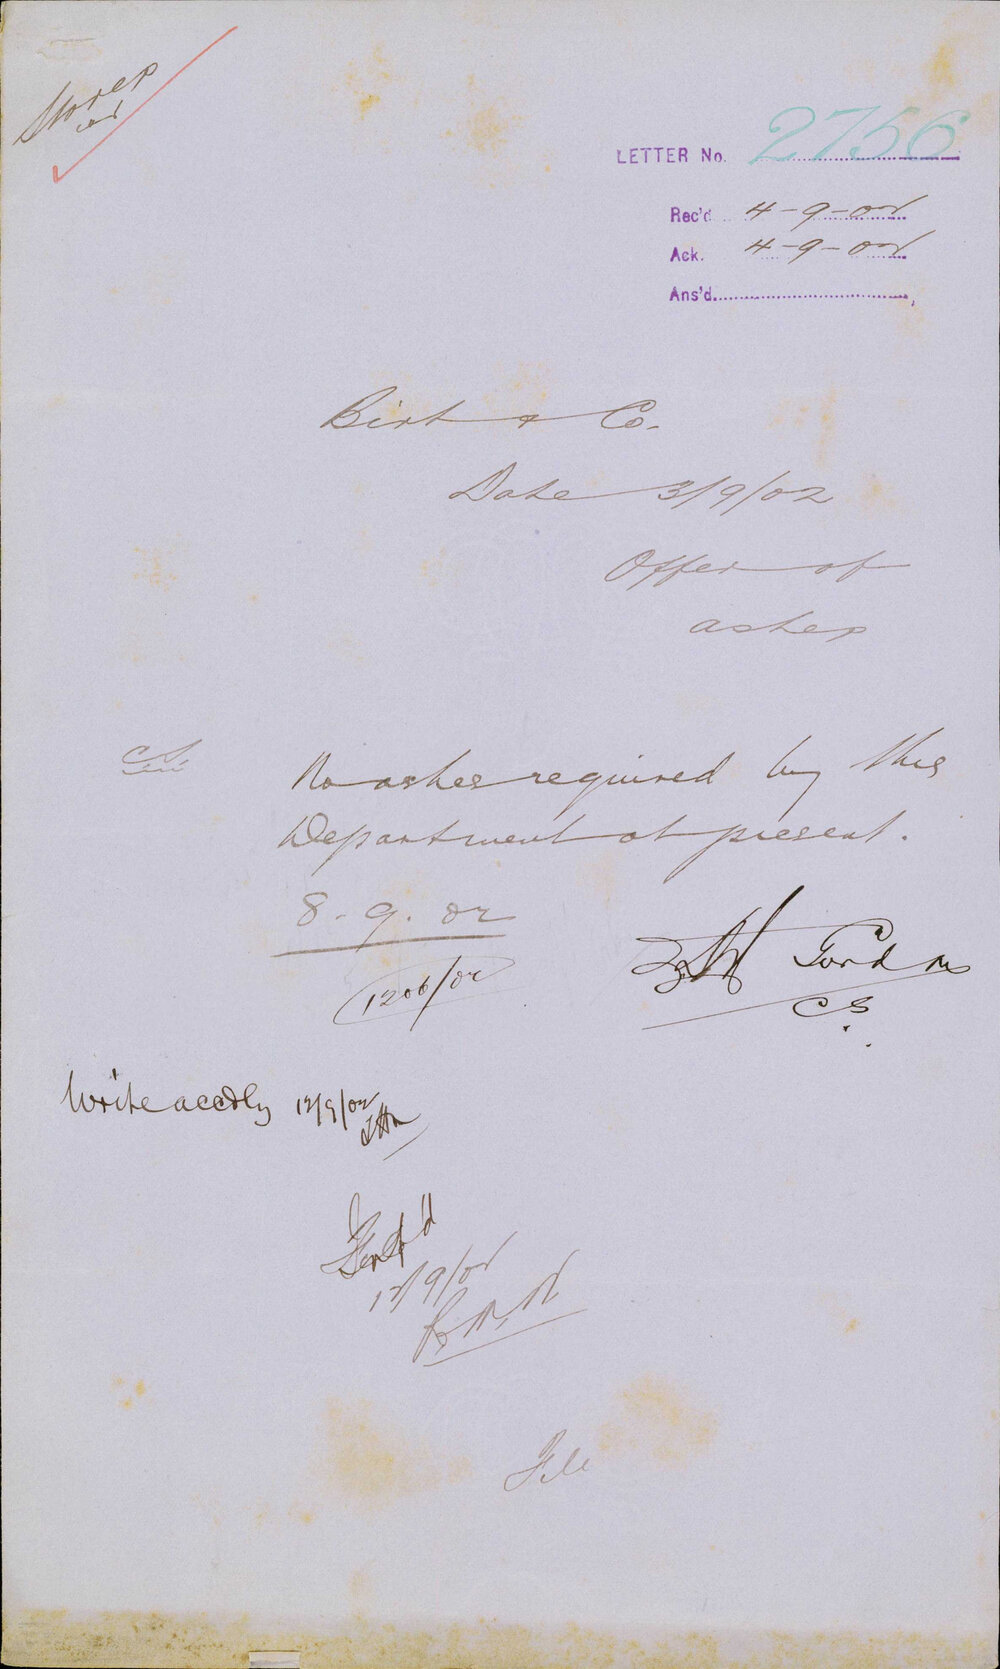 Stores
LETTER No. 2756
Rec'd 4-9-02
Ack. 4-9-02
Ans'd.
Birt & Co.
Date 3/9/02
Offer of
ashes
CS
No ashes required by this
Department at present.
8-9.02
1206/02
Gordon
CS
Write accdly 12/9/02
12/9/02
File